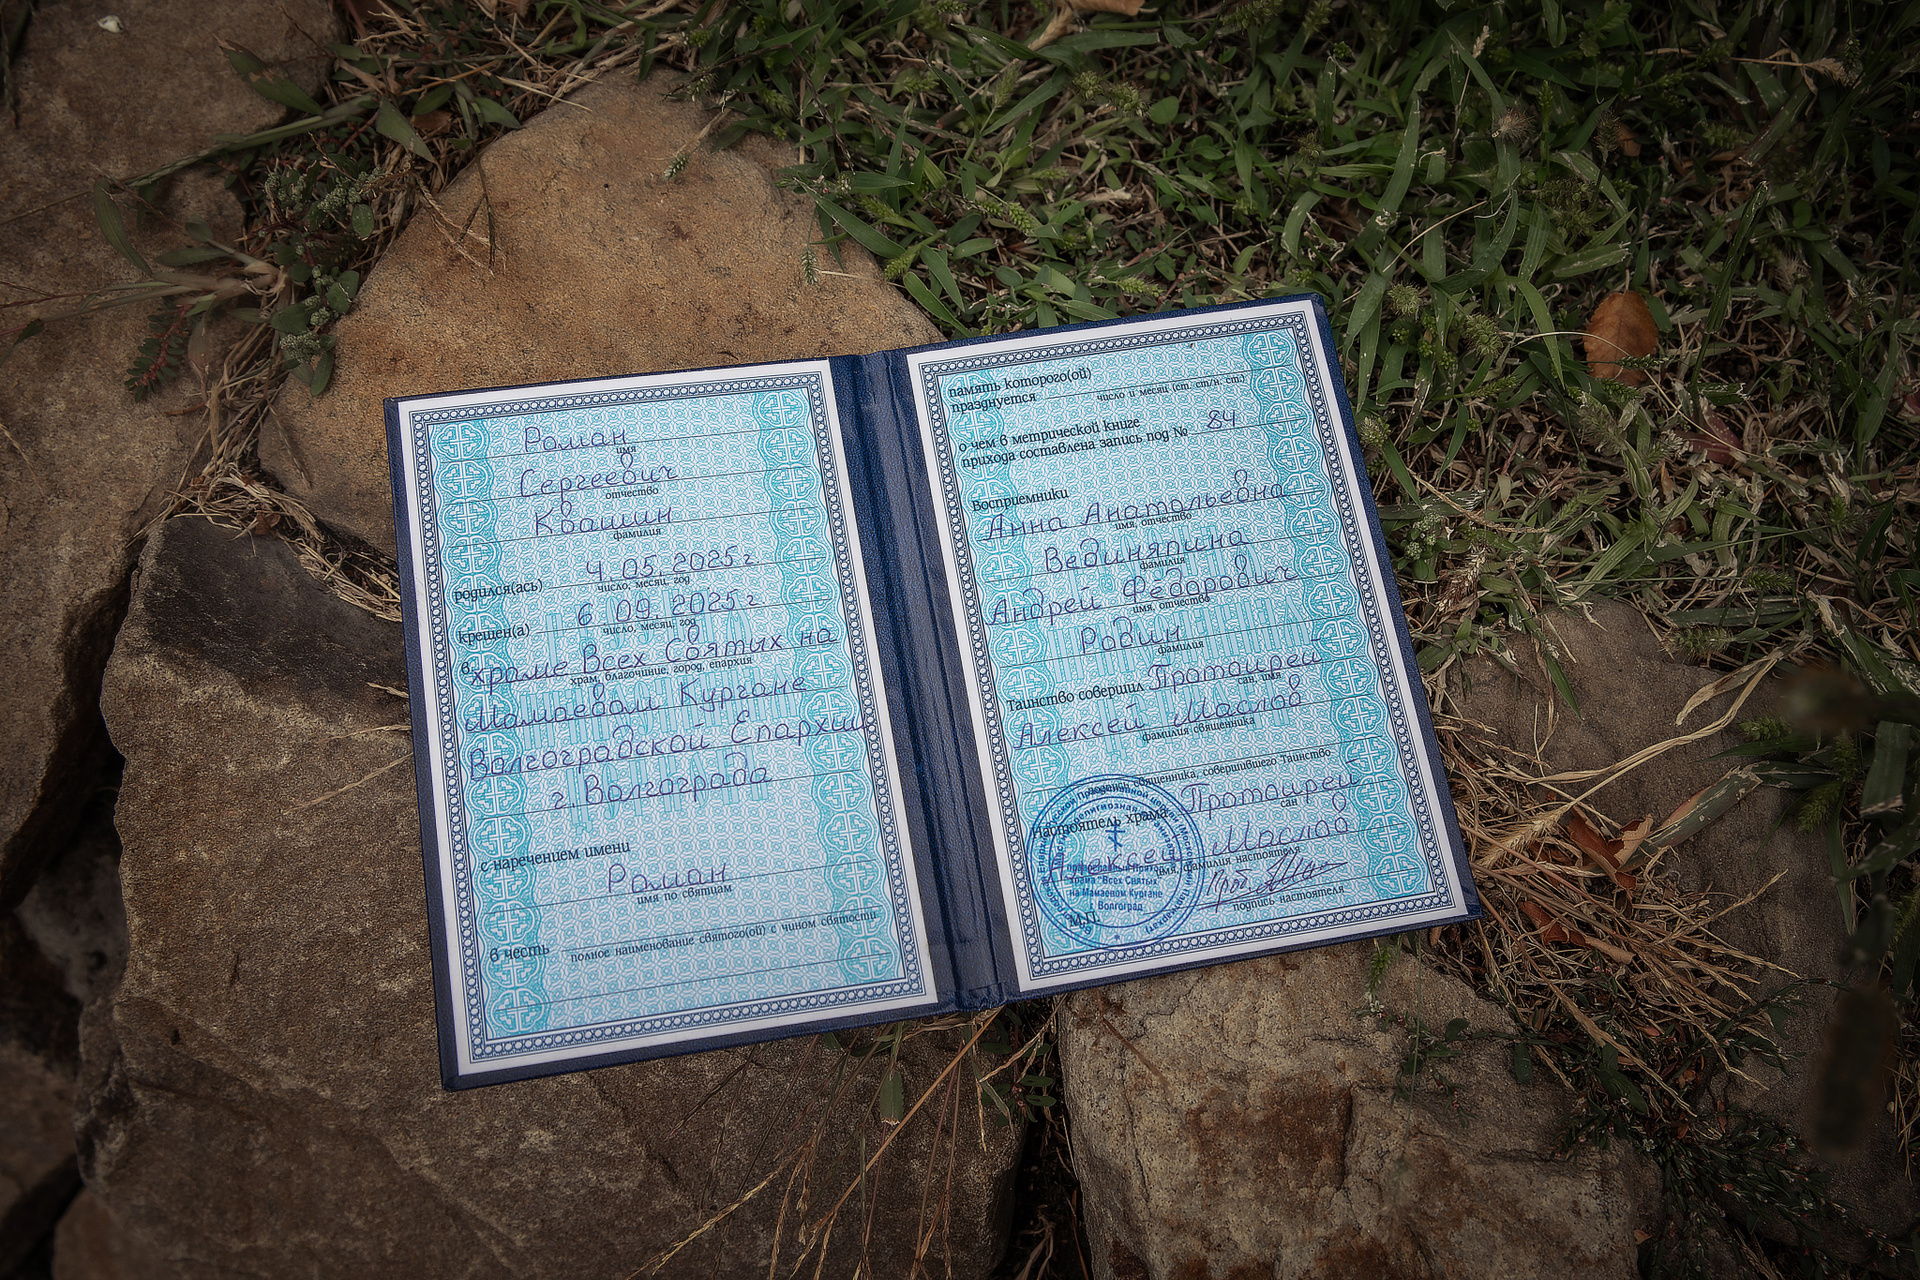 Роман
имя
Сергеевич
отчество
Квашин
фамилия
родился(ась) 4.05.2025г
число, месяц, год
крещен(а) 6 09. 2025г
число, месяц, год
в храме Всех Святых на
храм, благочиние, город, епархия
Мамаевом Кургане
Волгоградской Епархии
г. Волгограда
с наречением имени
Роман
имя по святцам
в честь
полное наименование святого(ой) с чином святости
память которого(ой)
празднуется
число и месяц (ст. ст/н. ст.)
о чем в метрической книге
прихода составлена запись под № 84
Восприемники
Анна Анатольевна
имя, отчество
Фамилия
Андрей Федорович
имя, отчество
Родин
фамилия
Таинство совершил Протоиерей
сан, имя
Алексей Маслов
фамилия священника
священника, совершившего Таинство
Протоиерей
сан
Настоятель храма
Алексей Маслов
имя, фамилия настоятеля
Прот.
подпись настоятеля
М.П.
храма "Всех Святых"
на Мамаевом Кургане
г. Волгоград